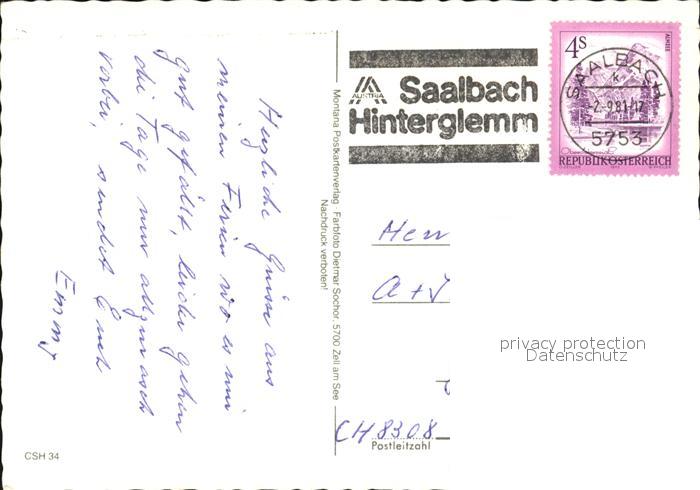 Herzliche Grüsse aus
meinen Ferien wo es mir
gut gefällt, leider gehen
die Tage nur allzurasch
vorbei, sendet Euch
Emmy
Montana Postkartenverlag · Farbfoto Dietmar Sochor, 5700 Zell am See
Nachdruck verboten!
AUSTRIA
Saalbach
Hinterglemm
4S
ALMSEE
SAALBACH
k
-2.-9.81-17
5753
REPUBLIK ÖSTERREICH
Herr
A + J
privacy protection
Datenschutz
CH 8308
Postleitzahl
CSH 34